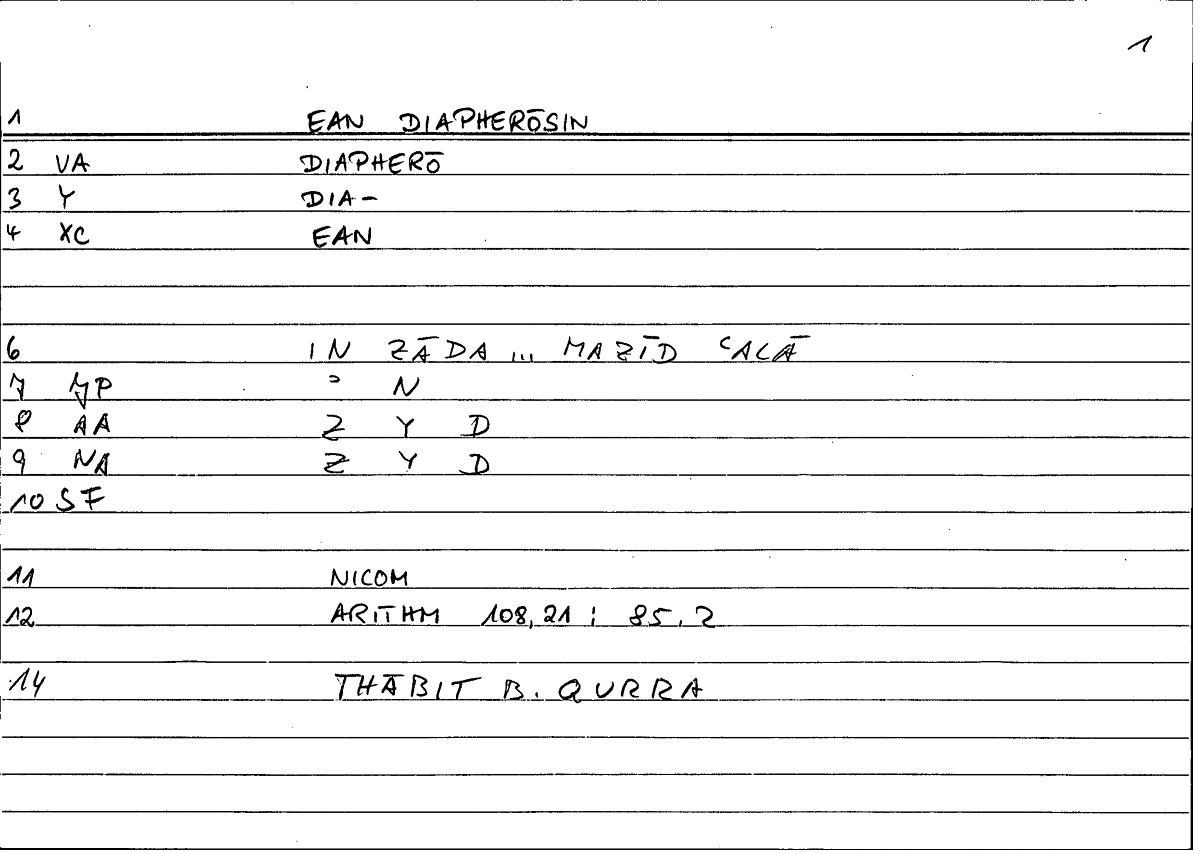 1
1 EAN DIAPHERŌSIN
2 VA DIAPHERŌ
3 Y DIA-
4 XC EAN
6 IN ZĀDA ... MAZĪD ʿALĀ
7 JP ʾ N
8 AA Z Y D
9 NA Z Y D
10 SF
11 NICOM
12 ARITHM 108,21 ; 85.2
14 THĀBIT B. QURRA